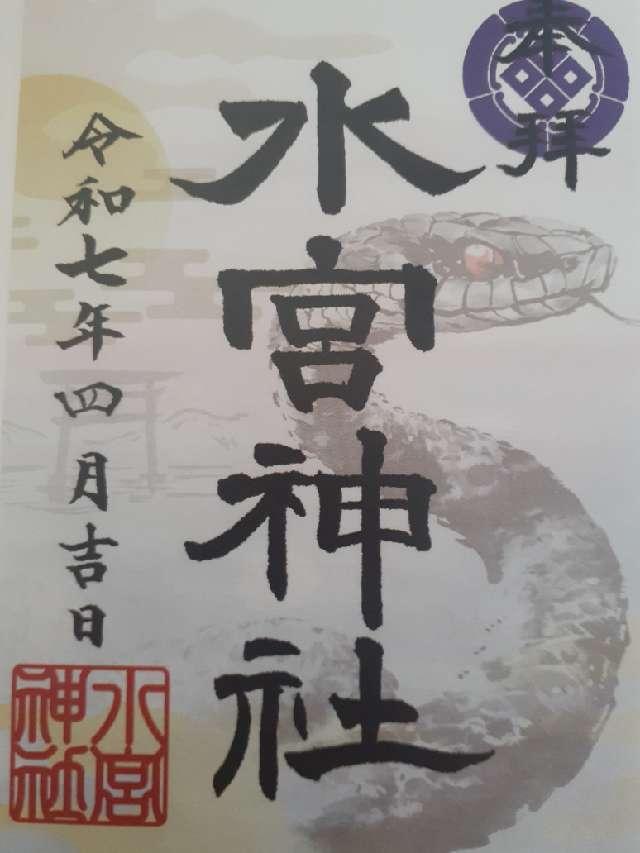 本拝
水宮神社
令和七年四月吉日
水宮
神社